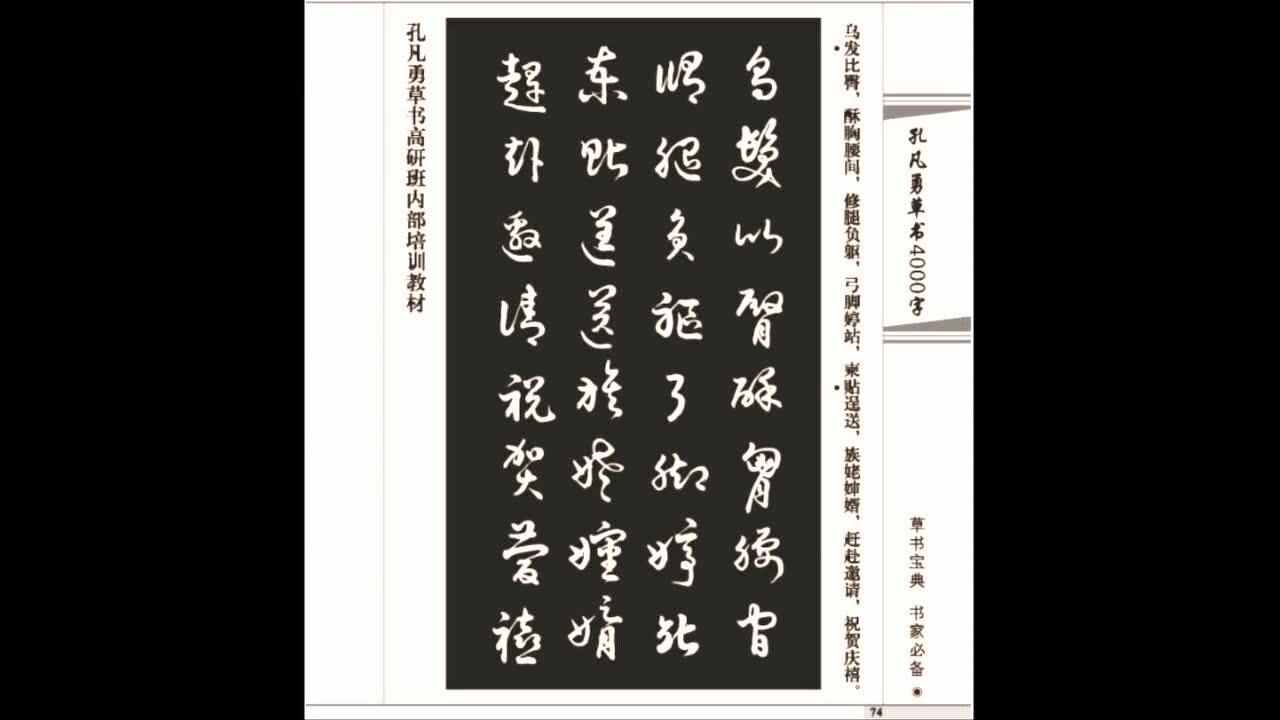 孔凡勇草书4000字
草书宝典 书家必备
乌发比臀，酥胸腰间，修腿负躯，弓脚婷站，柬贴逞送，族姥婶婿，赶赴邀请，祝贺庆禧。
烏髮比臀酥胸腰間
脩腿負軀弓腳婷站
柬貼逞送族姥嬸婿
趕赴邀請祝賀慶禧
孔凡勇草书高研班内部培训教材
74